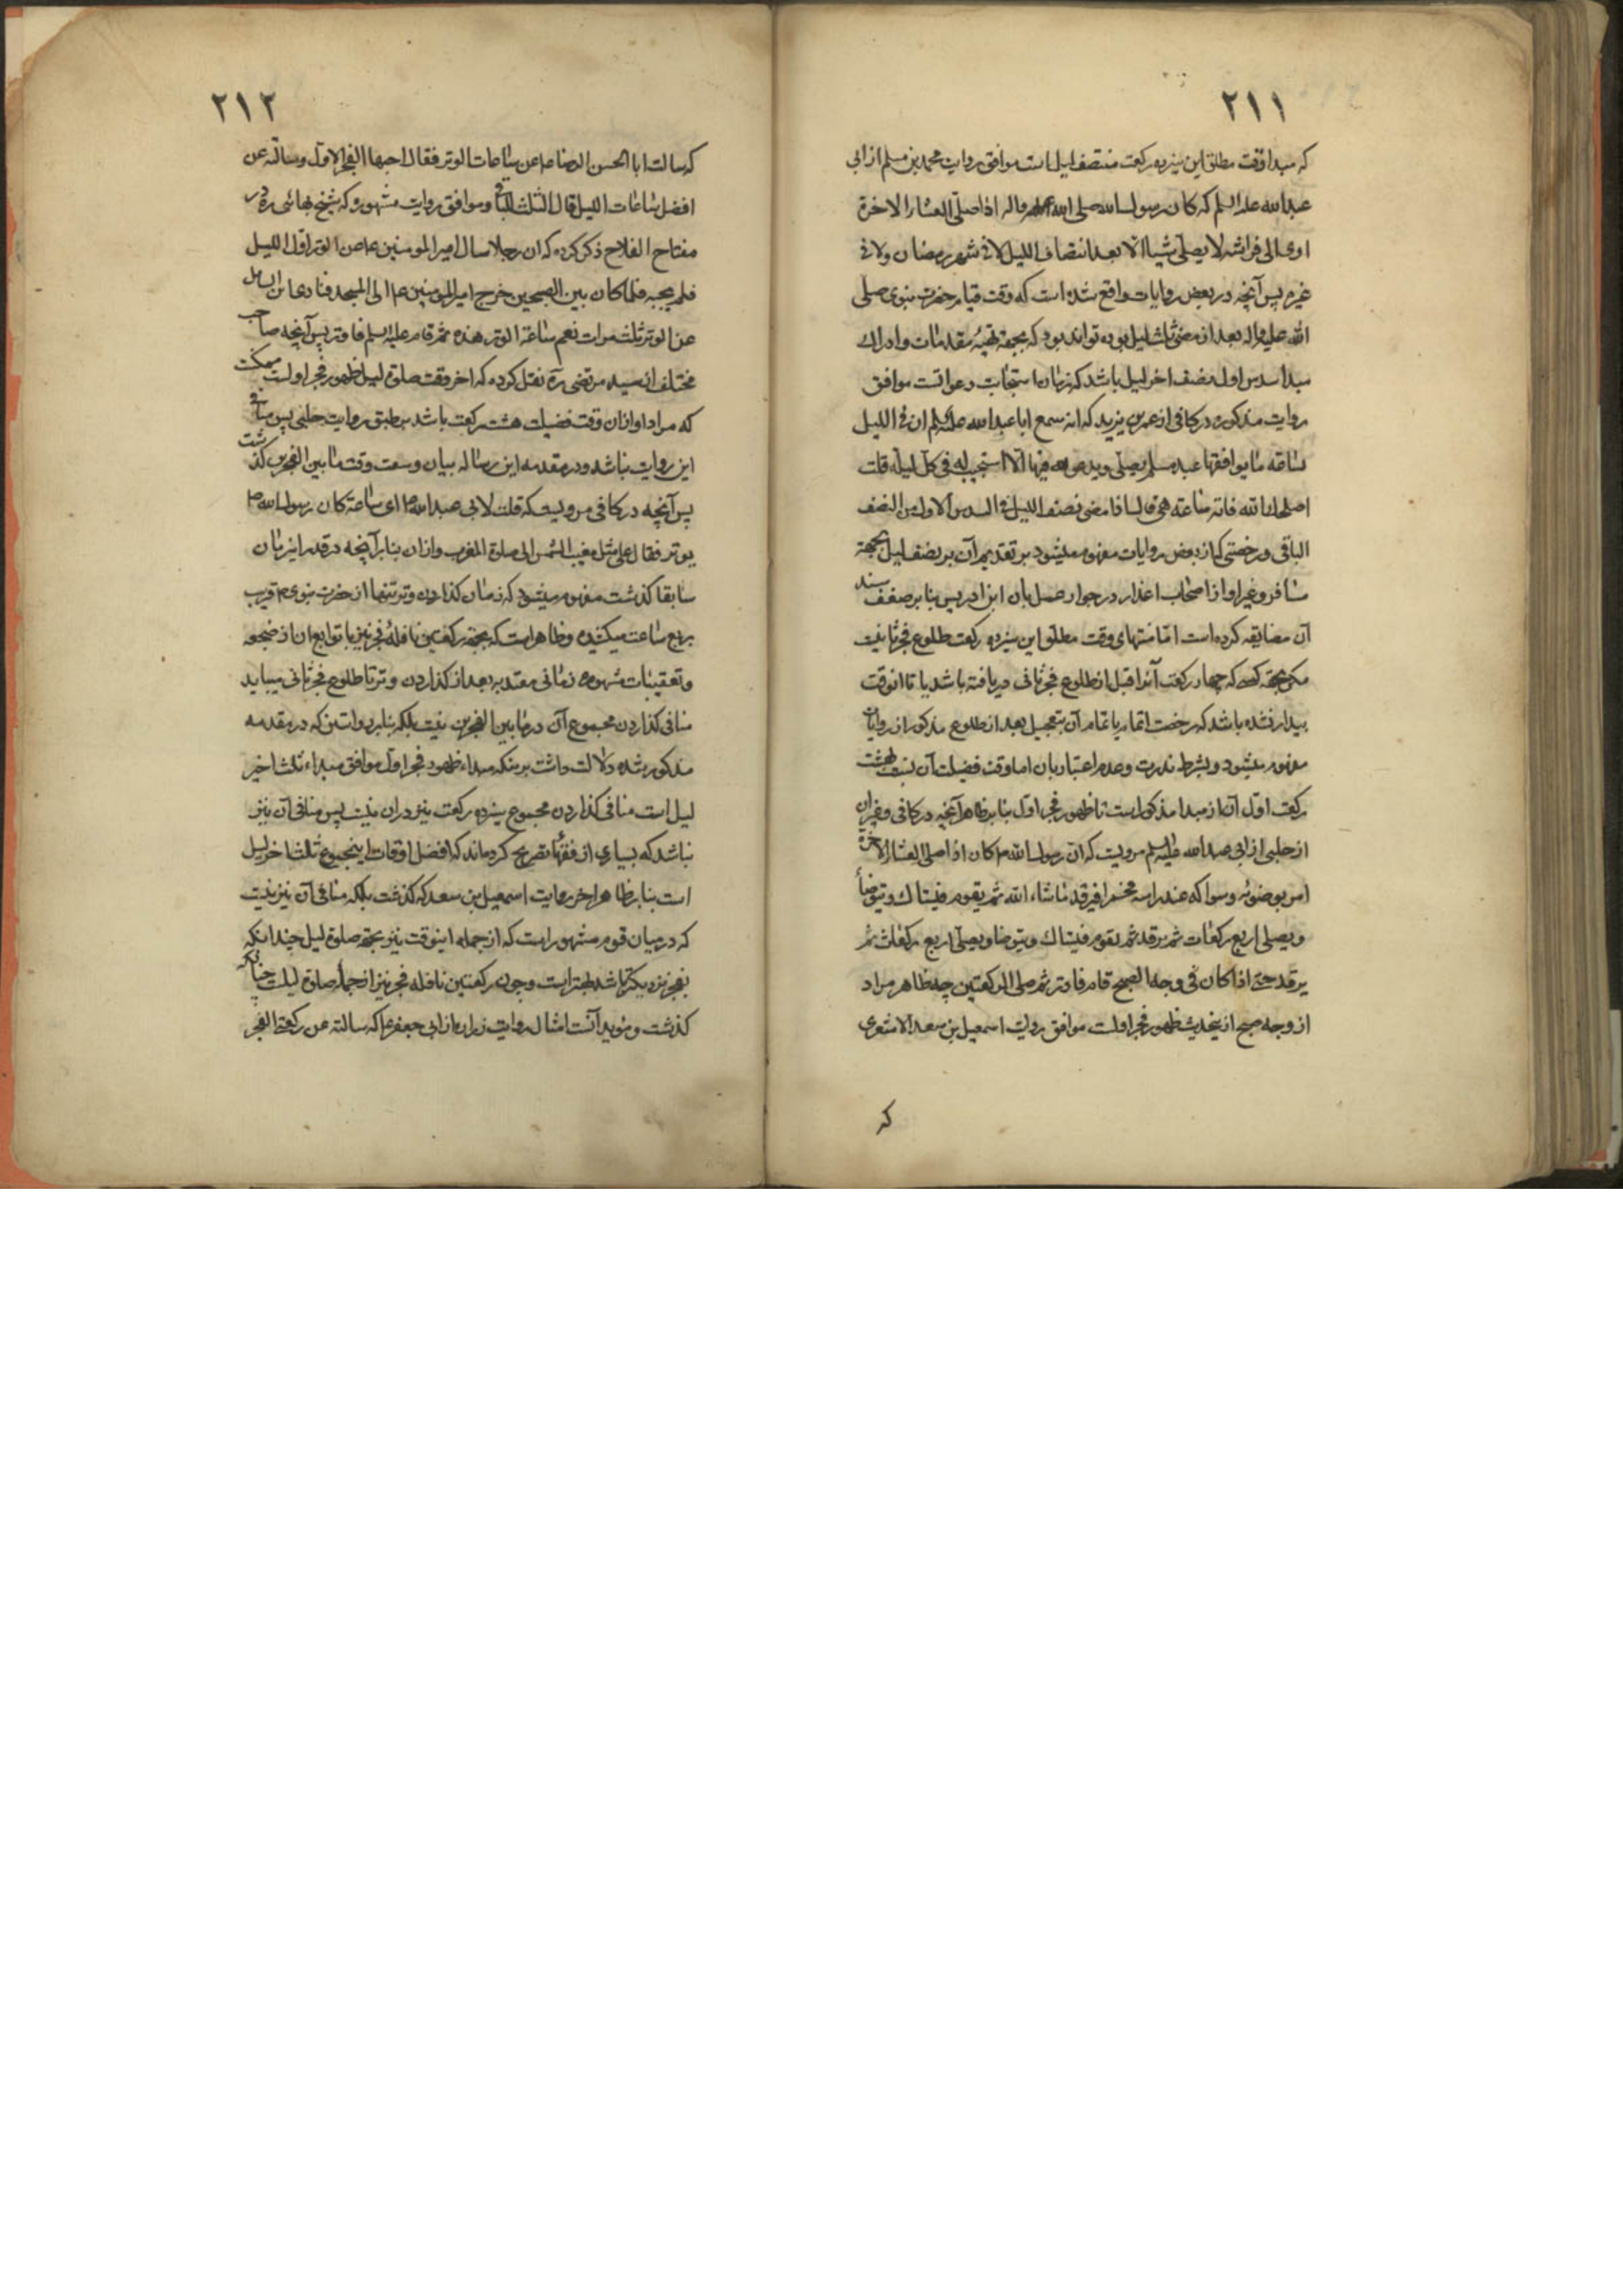 ٢١١
که مبدا وقت مطلق این سیزده رکعت منتصف لیل است موافق روایت محمد بن مسلم از ابی
عبدالله علیه السلم که کان رسول الله صلی الله علیه واله اذا صلی العشاء الاخرة
اوی الی فراشه لا یصلی شیئا الا بعد انتصاف اللیل لا فی شهر رمضان ولا فی
غیره پس آنچه در بعض روایات واقع شده است که وقت قیام حضرت نبوی صلی
الله علیه واله بعد از مضی ثلث لیل بوده تواند بود که بجهة تهیهٔ مقدمات و ادراک
مبدا سدس اول نصف اخر لیل باشد که زمان استجابت دعوات است موافق
روایت مذکوره در کافی از عمر بن یزید که انه سمع ابا عبدالله علیه السلم ان فی اللیل
لساعة ما یوافقها عبد مسلم یصلی ویدعو الله فیها الا استجیب له فی کل لیلة قلت
اصلحک الله فایة ساعة هی قال اذا مضی نصف اللیل فی السدس الاول من النصف
الباقی ورخصتی که از بعض روایات مفهوم میشود بر تقدیم آن بر نصف لیل بجهة
مسافر وغیر او از اصحاب اعذار در جواز عمل بان ابن ادریس بنا بر ضعف سند
آن مضایقه کرده است اما منتهای وقت مطلق این سیزده رکعت طلوع فجر ثانیست
مکر بجهة کسی که چهار رکعت آنرا قبل از طلوع فجر ثانی دریافته باشد یا تا انوقت
بیدار نشده باشد که رخصت اتمام یا تمام آن بتعجیل بعد از طلوع مذکور از روایات
مفهوم میشود وبشرط ندرت وعدم اعتیاد بان اما وقت فضیلت آن نسبت بهشت
رکعت اول آن از مبدا مذکور است تا ظهور فجر اول بنا بر ظاهر آنچه در کافی وغیر ان
از حلبی از ابی عبدالله علیه السلم مرویست که ان رسول الله ص کان اذا صلی العشاء الاخرة
امر بوضوئه وسواکه عند راسه مخمرا فیرقد ماشاء الله ثم یقوم فیستاک ویتوضأ
ویصلی اربع رکعات ثم یرقد ثم یقوم فیستاک ویتوضا ویصلی اربع رکعات ثم
یرقد حتی اذا کان فی وجه الصبح قام فاوتر ثم صلی الرکعتین چه ظاهر مراد
از وجه صبح از نیحدیث ظهور فجر اولست موافق روایت اسمعیل بن سعد الاشعری
که
٢١٢
که سالت ابا الحسن الرضا ع عن ساعات الوتر فقال احبها الفجر الاول وسالته عن
افضل ساعات اللیل قال الثلث الباقی وموافق روایت مشهوره که شیخ بهائی ره در
مفتاح الفلاح ذکر کرده که ان رجلا سال امیر المومنین ع عن الوتر اول اللیل
فلم یجبه فلما کان بین الصبحین خرج امیر المومنین ع الی المسجد فنادی این السایل
عن الوتر ثلث مرات نعم ساعة الوتر هذه ثم قام علیه السلم فاوتر پس آنچه صاحب
مختلف از سید مرتضی ره نقل کرده که اخر وقت صلوة لیل ظهور فجر اولست ممکنست
که مراد او از ان وقت فضیلت هشت رکعت باشد بر طبق روایت حلبی پس منافی
این روایت نباشد ودر مقدمه این رساله بیان وسعت وقت مابین الفجرین کذشت
پس آنچه در کافی مرویست که قلت لابی عبدالله ع ای ساعة کان رسول الله ص
یوتر فقال علی مثل مغیب الشمس الی صلوة المغرب وازان بنابر آنچه در قدر انزمان
سابقا کذشت مفهوم میشود که زمان کذاردن وتر تنها از حضرت نبوی ص قریب
بربع ساعت میکشیده وظاهر است که بجهة رکعتین نافلهٔ فجر نیز با توابع ان از ضجعه
وتعقیبات مشهوره زمانی معتد به بعد از کذاردن وتر تا طلوع فجر ثانی میباید
منافی کذاردن مجموع آن در مابین الفجرین نیست بلکه بنابر روایتین که در مقدمه
مذکور شده دلالت داشت بر آنکه مبداء ظهور فجر اول موافق مبداء ثلث اخیر
لیل است منافی کذاردن مجموع سیزده رکعت نیز دران نیست پس منافی آن نیز
نباشد که بسیاری از فقها تصریح کرده‌اند که افضل اوقات اینمجموع ثلث اخر لیل
است بنا بر ظاهر اخر روایت اسمعیل بن سعد که کذشت بلکه منافی آن نیز نیست
که در میان قوم مشهور است که از جمله اینوقت نیز بجهة صلوة لیل چندانکه
بفجر نزدیکتر باشد بهتر است وچون رکعتین نافله فجر نیز از جملهٔ صلوة لیلست چنانکه
کذشت ومؤید آنست امثال روایت زراره از ابی جعفر ع که سالته عن رکعتی الفجر